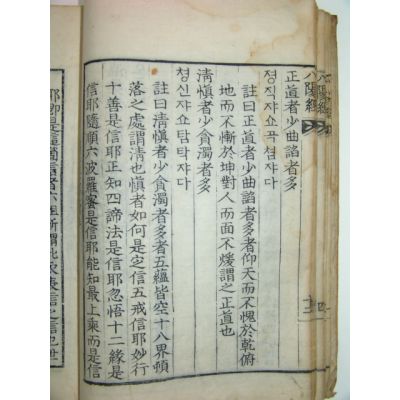 八陽經
正道者少曲謟者多
졍직쟈쇼곡쳠쟈다
註曰正道者少曲謟者多者仰天而不愧於乾俯
地而不慚於坤對人而面不煖謂之正道也
淸愼者少貪濁者多
쳥신쟈쇼탐탁쟈다
註曰淸愼者少貪濁者多者五蘊皆空十八界頓
落之處謂淸也愼者如何是㝎信五戒信耶妙行
十善是信耶正知四諦法是信耶忽悟十二緣是
信耶隨順六波羅蜜是信耶能知最上乘而是信